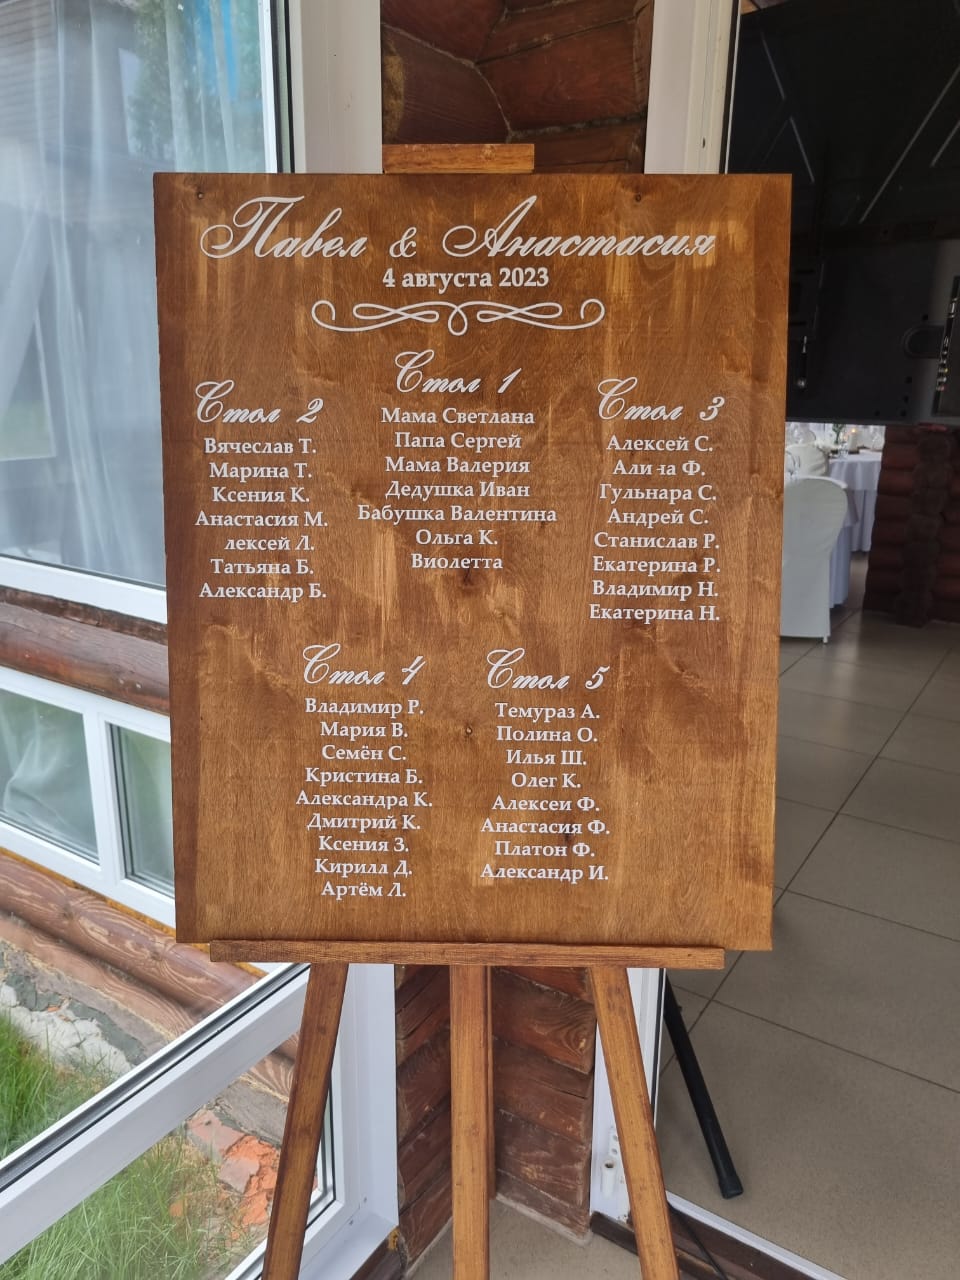 Павел & Анастасия
4 августа 2023
Стол 1
Мама Светлана
Папа Сергей
Мама Валерия
Дедушка Иван
Бабушка Валентина
Ольга К.
Виолетта
Стол 2
Вячеслав Т.
Марина Т.
Ксения К.
Анастасия М.
лексей Л.
Татьяна Б.
Александр Б.
Стол 3
Алексей С.
Али на Ф.
Гульнара С.
Андрей С.
Станислав Р.
Екатерина Р.
Владимир Н.
Екатерина Н.
Стол 4
Владимир Р.
Мария В.
Семён С.
Кристина Б.
Александра К.
Дмитрий К.
Ксения З.
Кирилл Д.
Артём Л.
Стол 5
Темураз А.
Полина О.
Илья Ш.
Олег К.
Алексеи Ф.
Анастасия Ф.
Платон Ф.
Александр И.